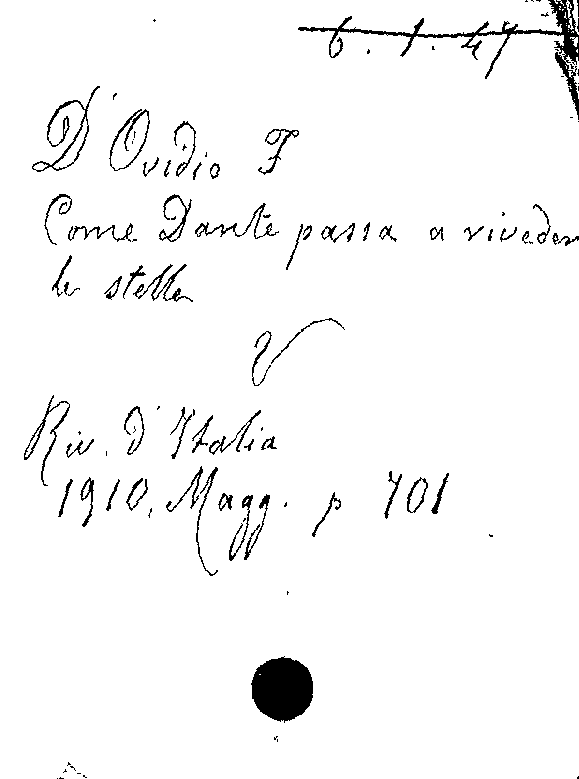 6.1.47
D'Ovidio F
Come Dante passa a riveder
le stelle
V
Riv. d'Italia
1910. Magg. p 701